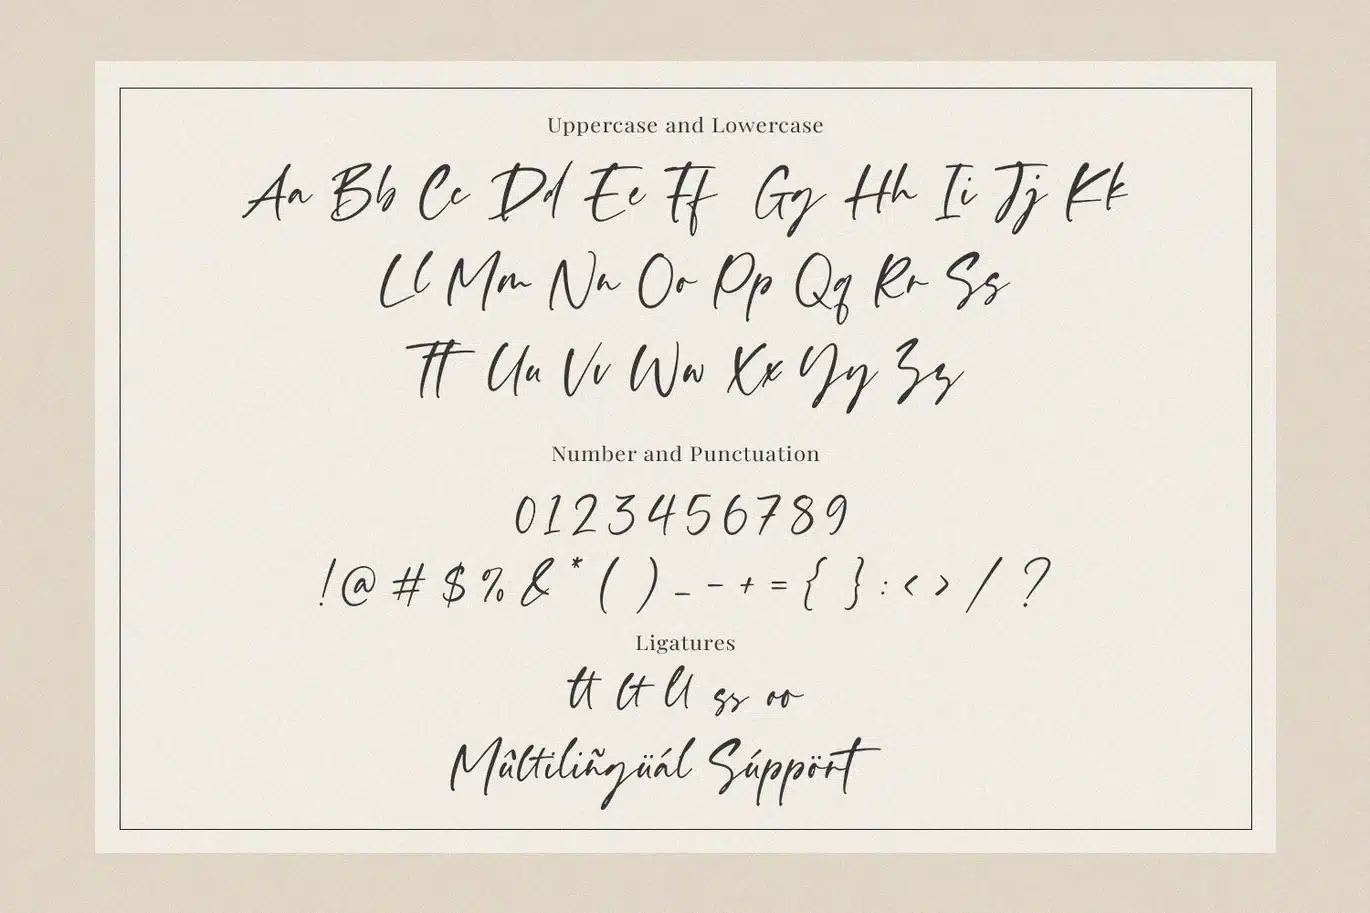 Uppercase and Lowercase
Aa Bb Cc Dd Ee Ff Gg Hh Ii Jj Kk
Ll Mm Nn Oo Pp Qq Rr Ss
Tt Uu Vv Ww Xx Yy Zz
Number and Punctuation
0123456789
!@#$%&*()_-+={}:<>/?
Ligatures
tt lt ll ss oo
Mûltiliñgüál Súppört